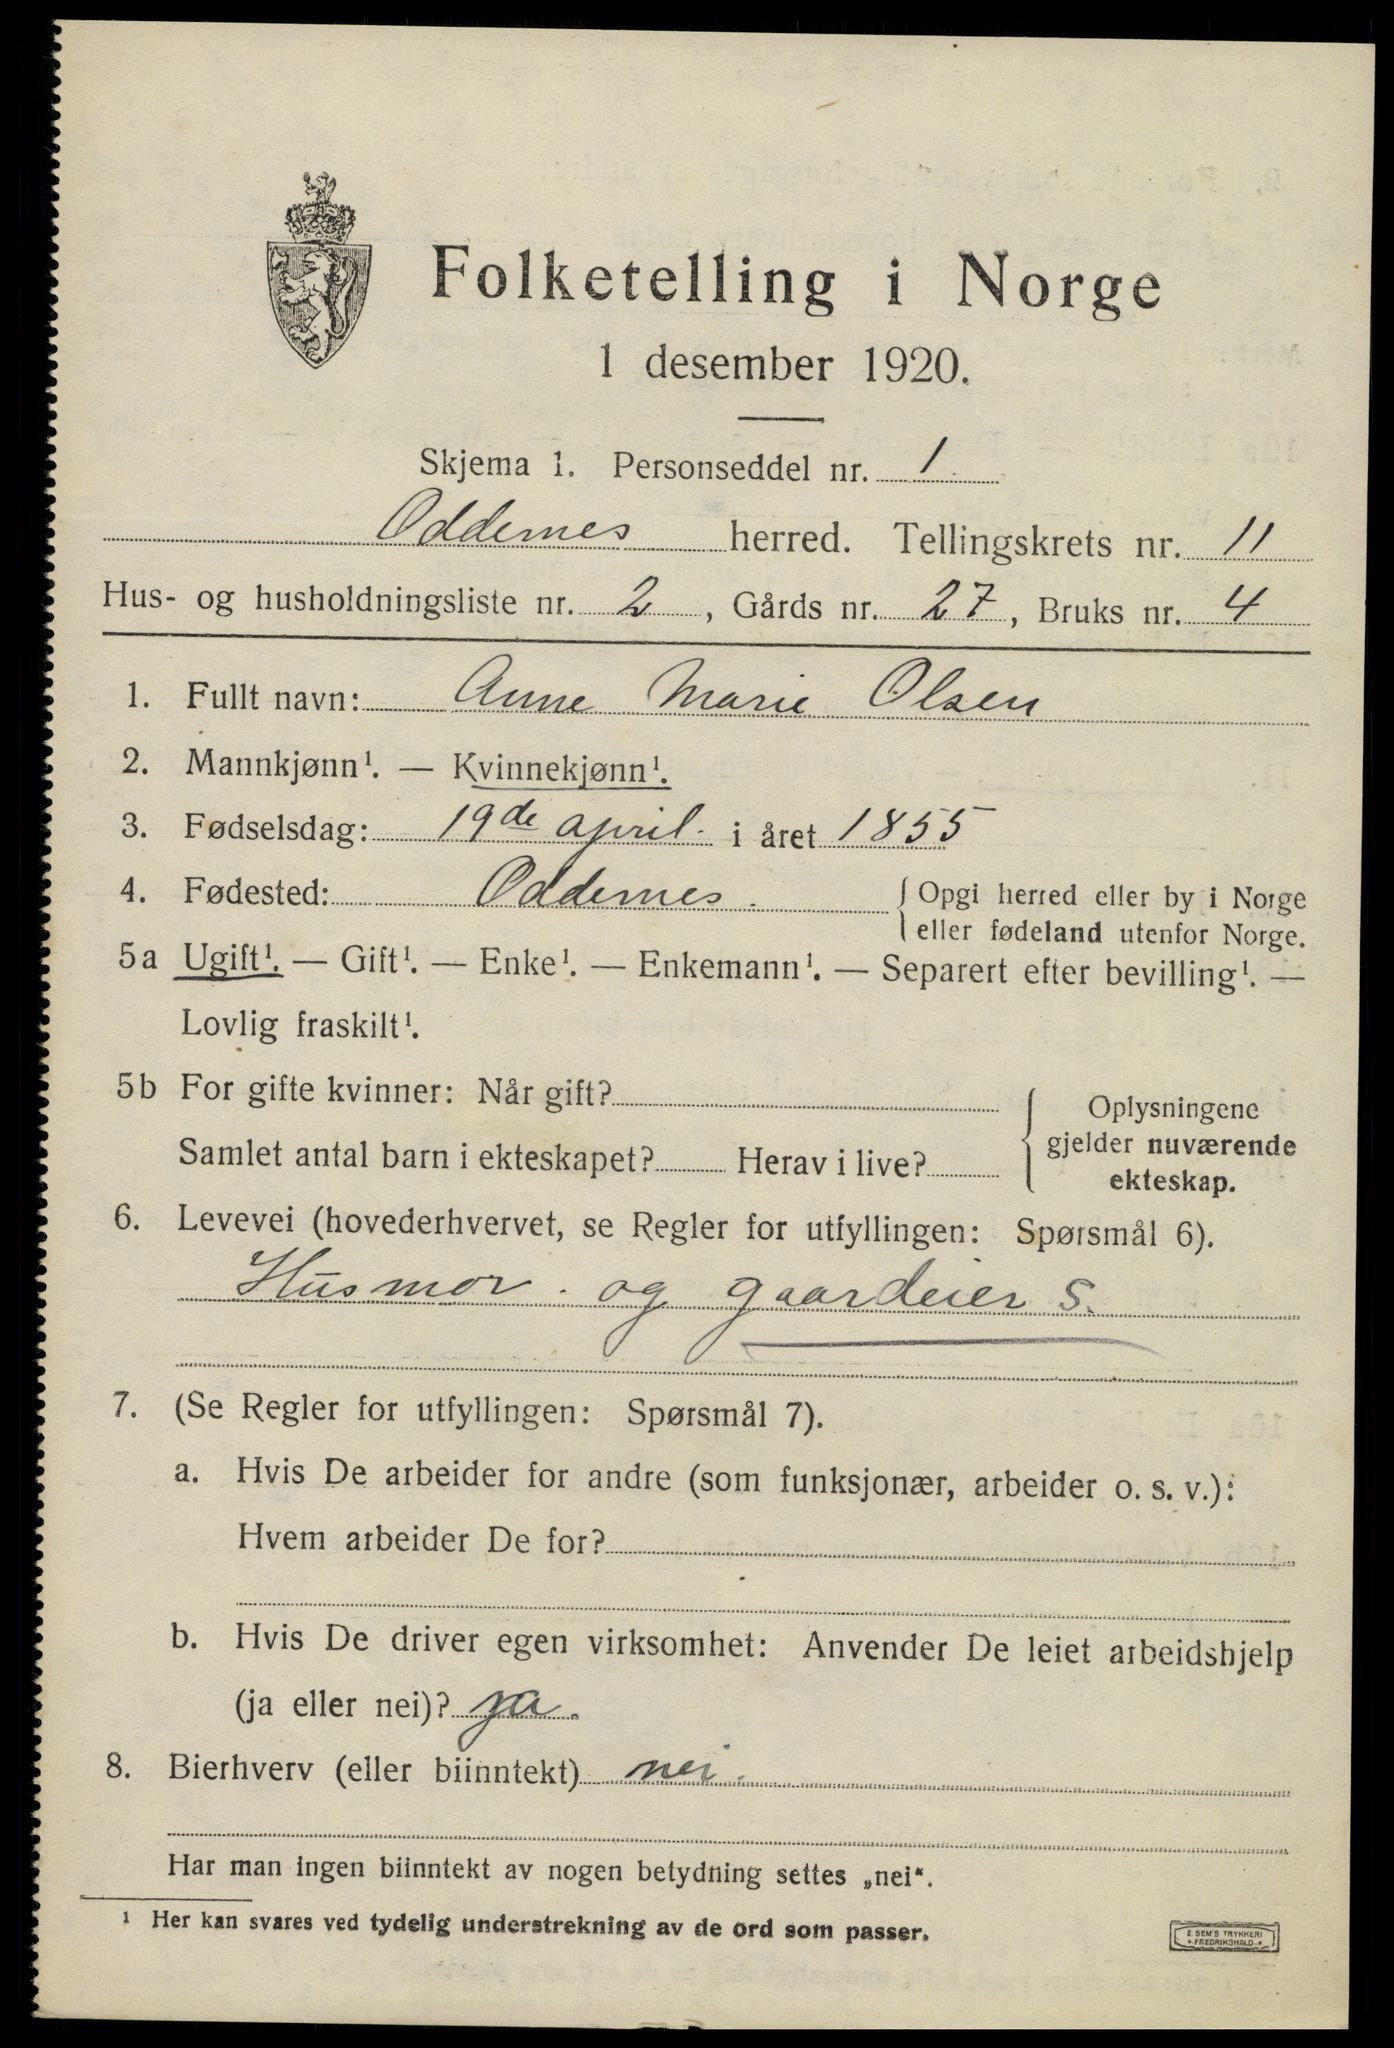 Folketelling i Norge
1 desember 1920.
Skjema 1. Personseddel nr. 1
Oddernes herred. Tellingskrets nr. 11
Hus- og husholdningsliste nr. 2, Gårds nr. 27, Bruks nr. 4
1. Fullt navn: Anne Marie Olsen
2. Mannkjønn¹. — Kvinnekjønn¹.
3. Fødselsdag: 19de april. i året 1855
4. Fødested: Oddernes. { Opgi herred eller by i Norge
eller fødeland utenfor Norge.
5a Ugift¹. — Gift¹. — Enke¹. — Enkemann¹. — Separert efter bevilling¹. —
Lovlig fraskilt¹.
5b For gifte kvinner: Når gift?
Samlet antal barn i ekteskapet? Herav i live?
Oplysningene
gjelder nuværende
ekteskap.
6. Levevei (hovederhvervet, se Regler for utfyllingen: Spørsmål 6).
Husmor. og gaardeier s.
7. (Se Regler for utfyllingen: Spørsmål 7).
a. Hvis De arbeider for andre (som funksjonær, arbeider o. s. v.):
Hvem arbeider De for?
b. Hvis De driver egen virksomhet: Anvender De leiet arbeidshjelp
(ja eller nei)? ja.
8. Bierhverv (eller biinntekt) nei.
Har man ingen biinntekt av nogen betydning settes „nei“.
¹ Her kan svares ved tydelig understrekning av de ord som passer.
E. SEM'S TRYKKERI
FREDRIKSHALD